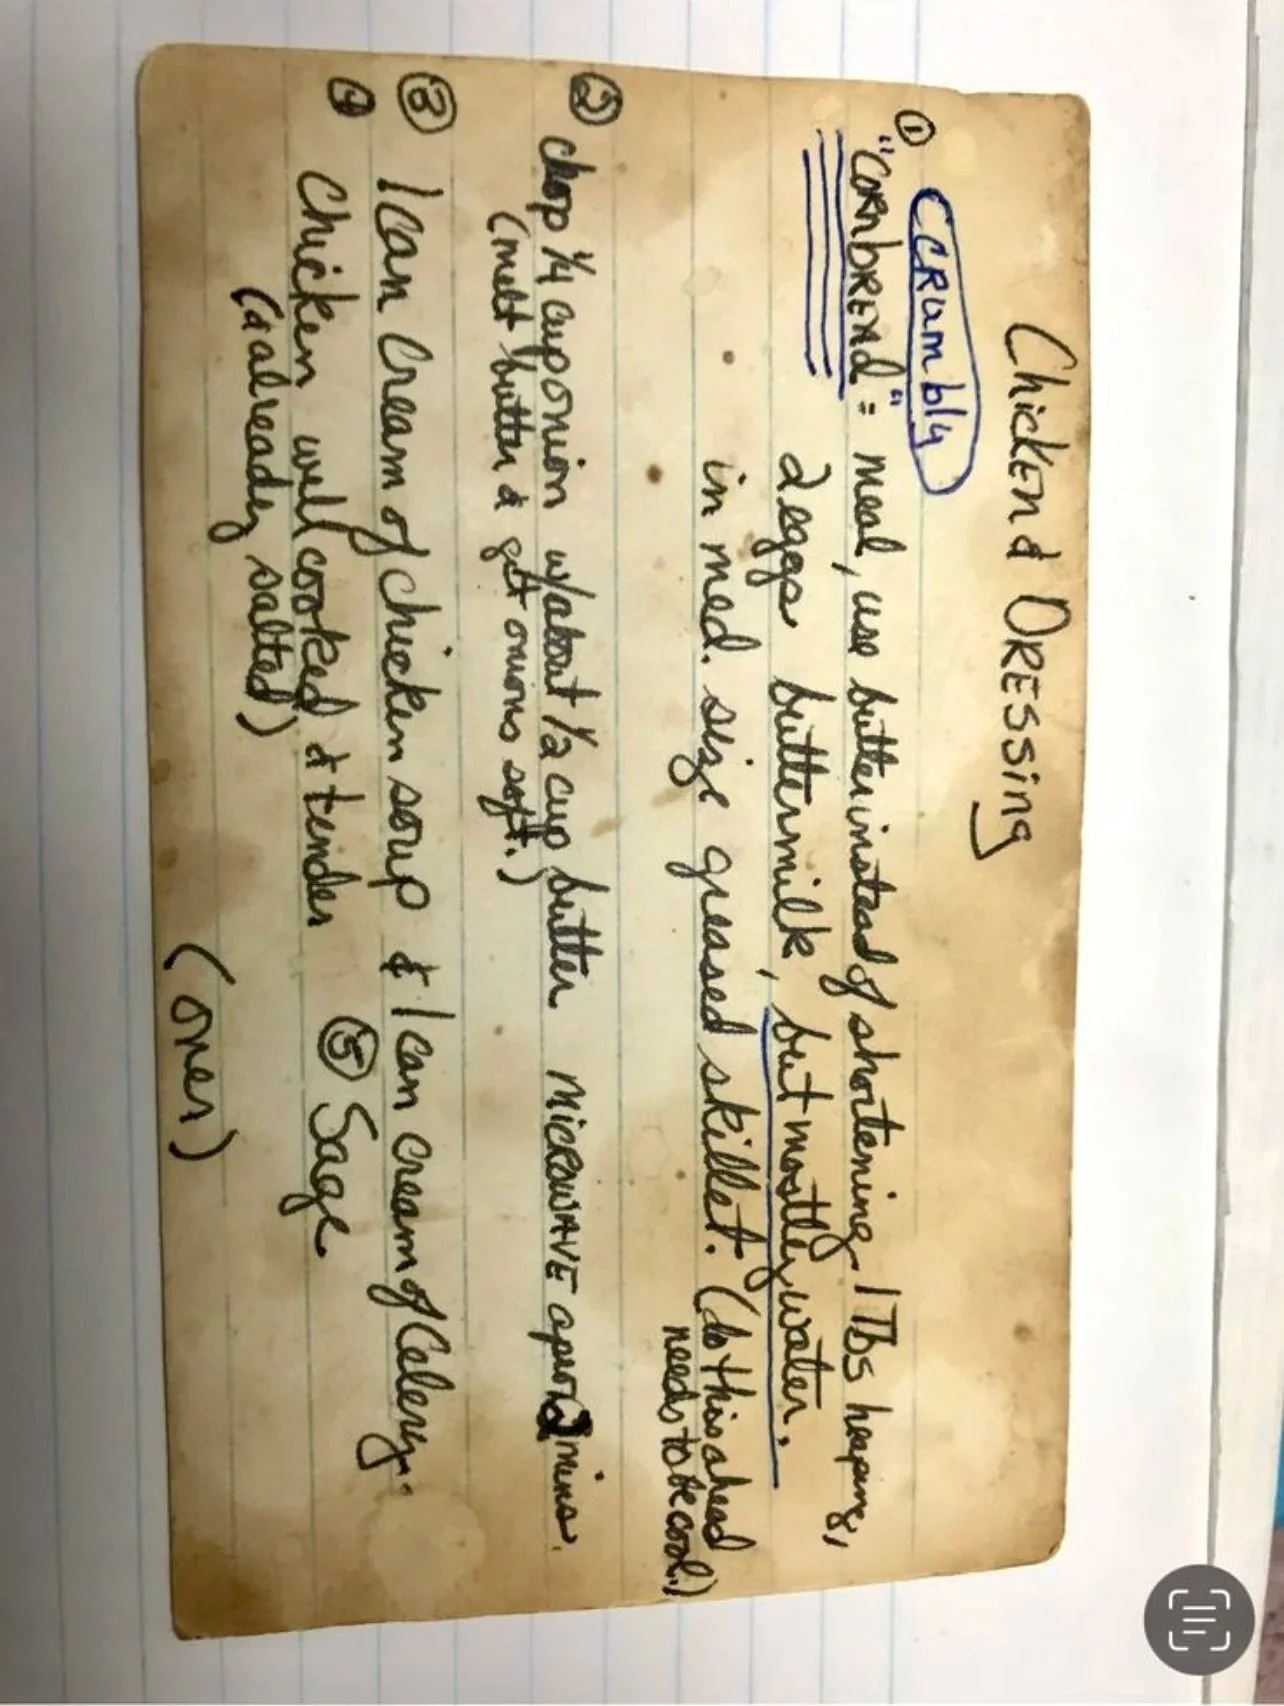 Chicken & Dressing
Crumbly
① "Cornbread" = meal, use butter instead of shortening. 1 Tbs heaping,
2 eggs buttermilk, but mostly water.
in med. size greased skillet. (do this ahead
needs to be cool.)
② chop 1/4 cup onion w/about 1/2 cup butter microwave aprox 2 mins.
(melt butter & get onions soft.)
③ 1 can Cream of chicken soup & 1 can cream of Celery.
④ Chicken well cooked & tender ⑤ Sage
(& already salted)
(over)